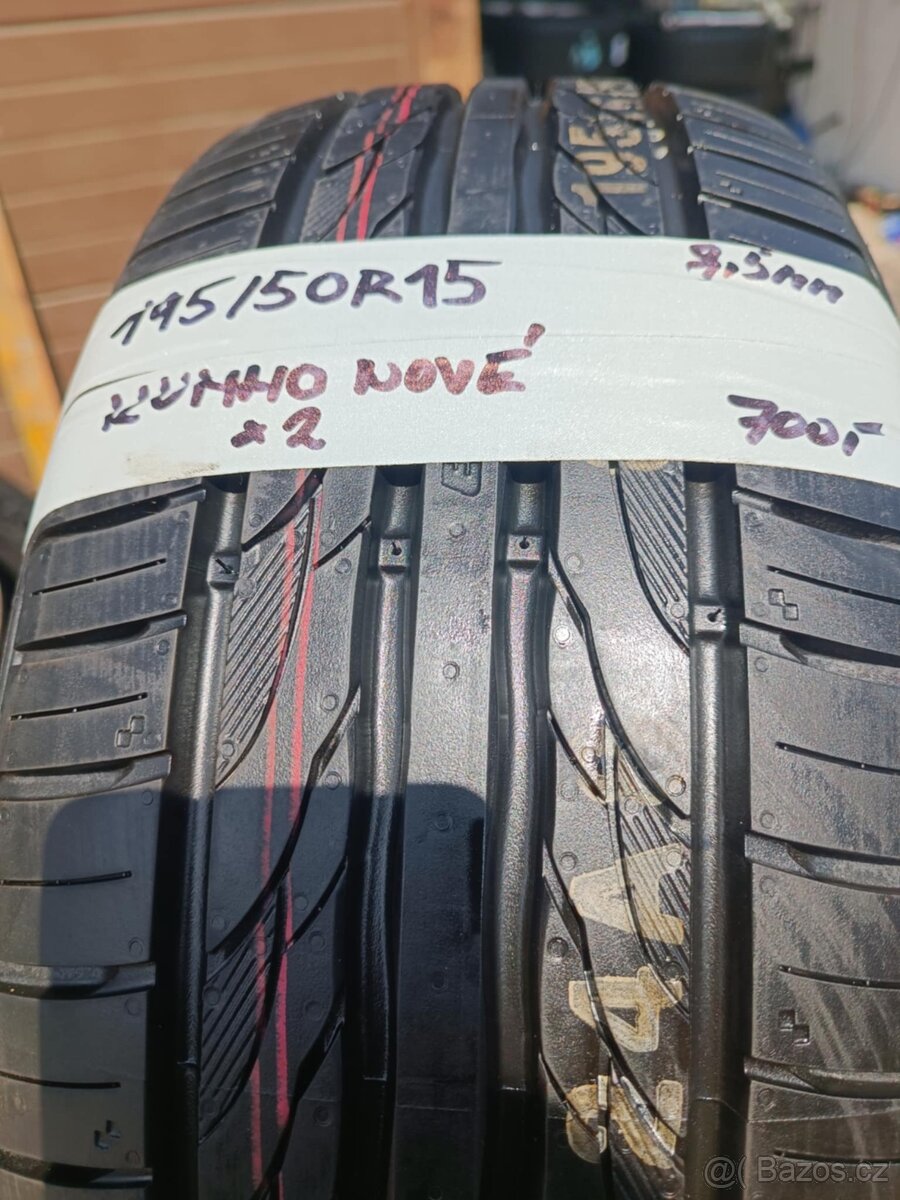 195/50R15 7,5mm
KUMHO NOVÉ
x2 700,-
@( Bazos.cz